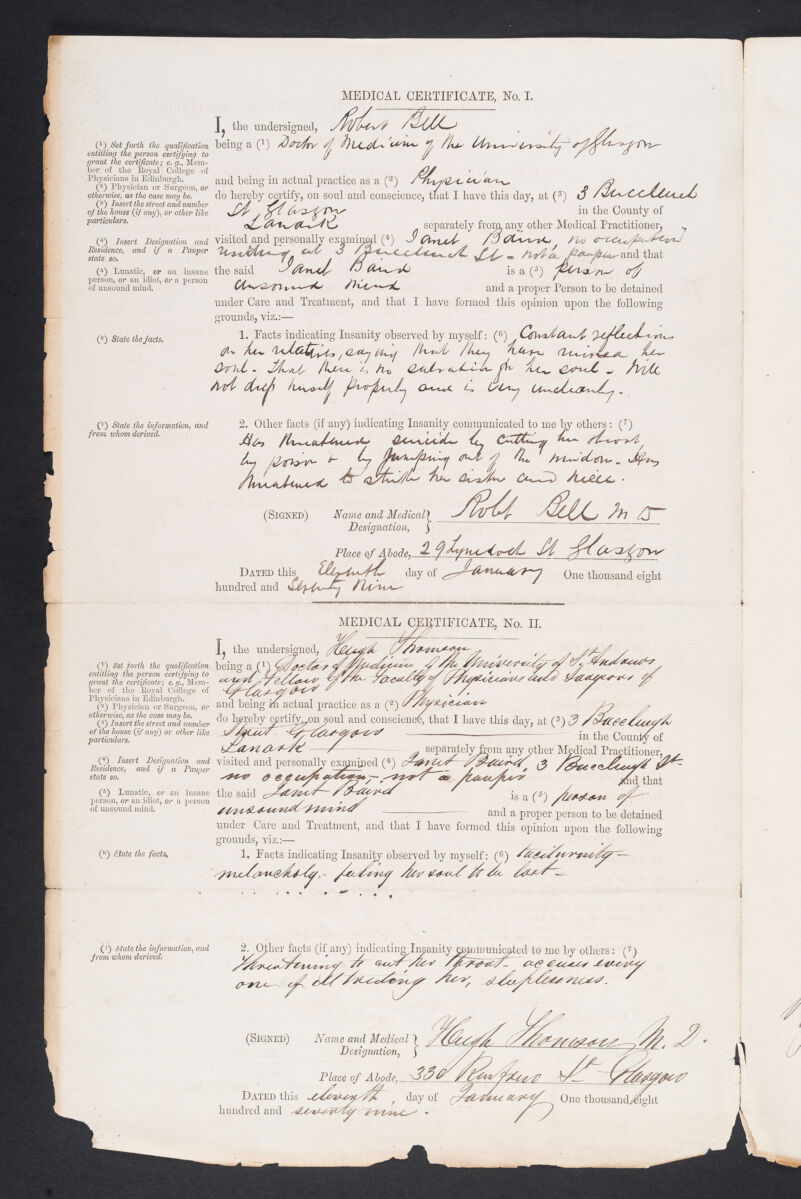 MEDICAL CERTIFICATE, No. I.
I, the undersigned, Robert Bell
(¹) Set forth the qualification
entitling the person certifying to
grant the certificate; e.g., Mem-
ber of the Royal College of
Physicians in Edinburgh.
being a (¹) Doctor of Medicine of the University of Glasgow
(²) Physician or Surgeon, or
otherwise, as the case may be.
and being in actual practice as a (²) Physician
(³) Insert the street and number
of the house (if any), or other like
particulars.
do hereby certify, on soul and conscience, that I have this day, at (³) 3 Buccleuch
St Glasgow in the County of
Lanark separately from any other Medical Practitioner,
(⁴) Insert Designation and
Residence, and if a Pauper
state so.
visited and personally examined (⁴) Janet Baird, no occupation
residing at 3 Buccleuch St - not a pauper and that
(⁵) Lunatic, or an insane
person, or an idiot, or a person
of unsound mind.
the said Janet Baird is a (⁵) person of
unsound mind and a proper Person to be detained
under Care and Treatment, and that I have formed this opinion upon the following
grounds, viz.:—
(⁶) State the facts.
1. Facts indicating Insanity observed by myself: (⁶) Constant reflections
on her relatives, saying that they have ruined her
soul - that there is no salvation for her soul - Will
not dress herself properly and is very uncleanly -
(⁷) State the information, and
from whom derived.
2. Other facts (if any) indicating Insanity communicated to me by others: (⁷)
Has threatened suicide by cutting her throat,
by poison & by jumping out of the window - Has
threatened to strike her sister and niece.
(SIGNED) Name and Medical Designation, Robt Bell M D
Place of Abode, 29 Lynedoch St Glasgow
DATED this Eleventh day of January One thousand eight
hundred and Seventy Nine
MEDICAL CERTIFICATE, No. II.
I, the undersigned, Hugh Thomson
(¹) Set forth the qualification
entitling the person certifying to
grant the certificate; e.g., Mem-
ber of the Royal College of
Physicians in Edinburgh.
being a (¹) Doctor of Medicine of the University of St Andrews
and Fellow of the Faculty of Physicians and Surgeons of
Glasgow
(²) Physician or Surgeon, or
otherwise, as the case may be.
and being in actual practice as a (²) Physician
(³) Insert the street and number
of the house (if any) or other like
particulars.
do hereby certify, on soul and conscience, that I have this day, at (³) 3 Buccleugh
Street Glasgow in the County of
Lanark separately from any other Medical Practitioner,
(⁴) Insert Designation and
Residence, and if a Pauper
state so.
visited and personally examined (⁴) Janet Baird, 3 Buccleugh St-
no occupation, - not a pauper and that
(⁵) Lunatic, or an insane
person, or an idiot, or a person
of unsound mind.
the said Janet Baird is a (⁵) person of
unsound mind and a proper person to be detained
under Care and Treatment, and that I have formed this opinion upon the following
grounds, viz.:—
(⁶) State the facts.
1. Facts indicating Insanity observed by myself: (⁶) taciturnity -
melancholy, - feeling her soul to be lost -
(⁷) State the information, and
from whom derived.
2. Other facts (if any) indicating Insanity communicated to me by others: (⁷)
threatening to cut her throat - accuses every
one of ill treating her, sleeplessness.
(SIGNED) Name and Medical Designation, Hugh Thomson, M. D.
Place of Abode, 330 Renfrew St Glasgow
DATED this eleventh day of January One thousand eight
hundred and seventy nine.